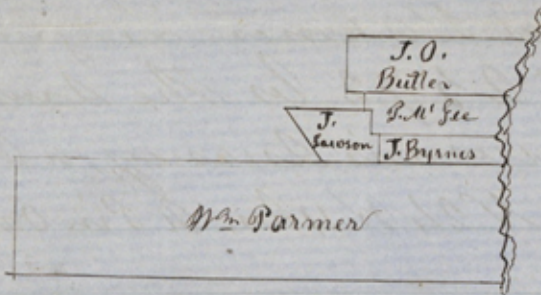 J. O.
Butler
P. Mc Gee
J.
Lawson
J. Byrnes
Wm Parmer